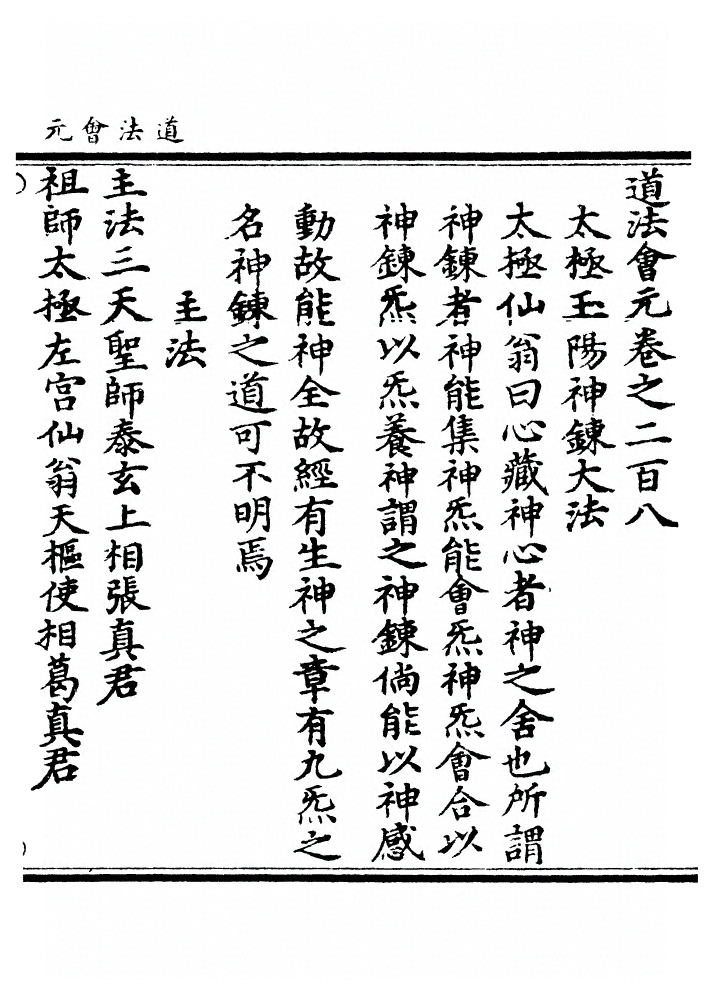 道法會元
道法會元卷之二百八
太極玉陽神鍊大法
太極仙翁曰心藏神心者神之舍也所謂
神鍊者神能集神炁能會炁神炁會合以
神鍊炁以炁養神謂之神鍊倘能以神感
動故能神全故經有生神之章有九炁之
名神鍊之道可不明焉
主法
主法三天聖師泰玄上相張真君
祖師太極左宮仙翁天樞使相葛真君